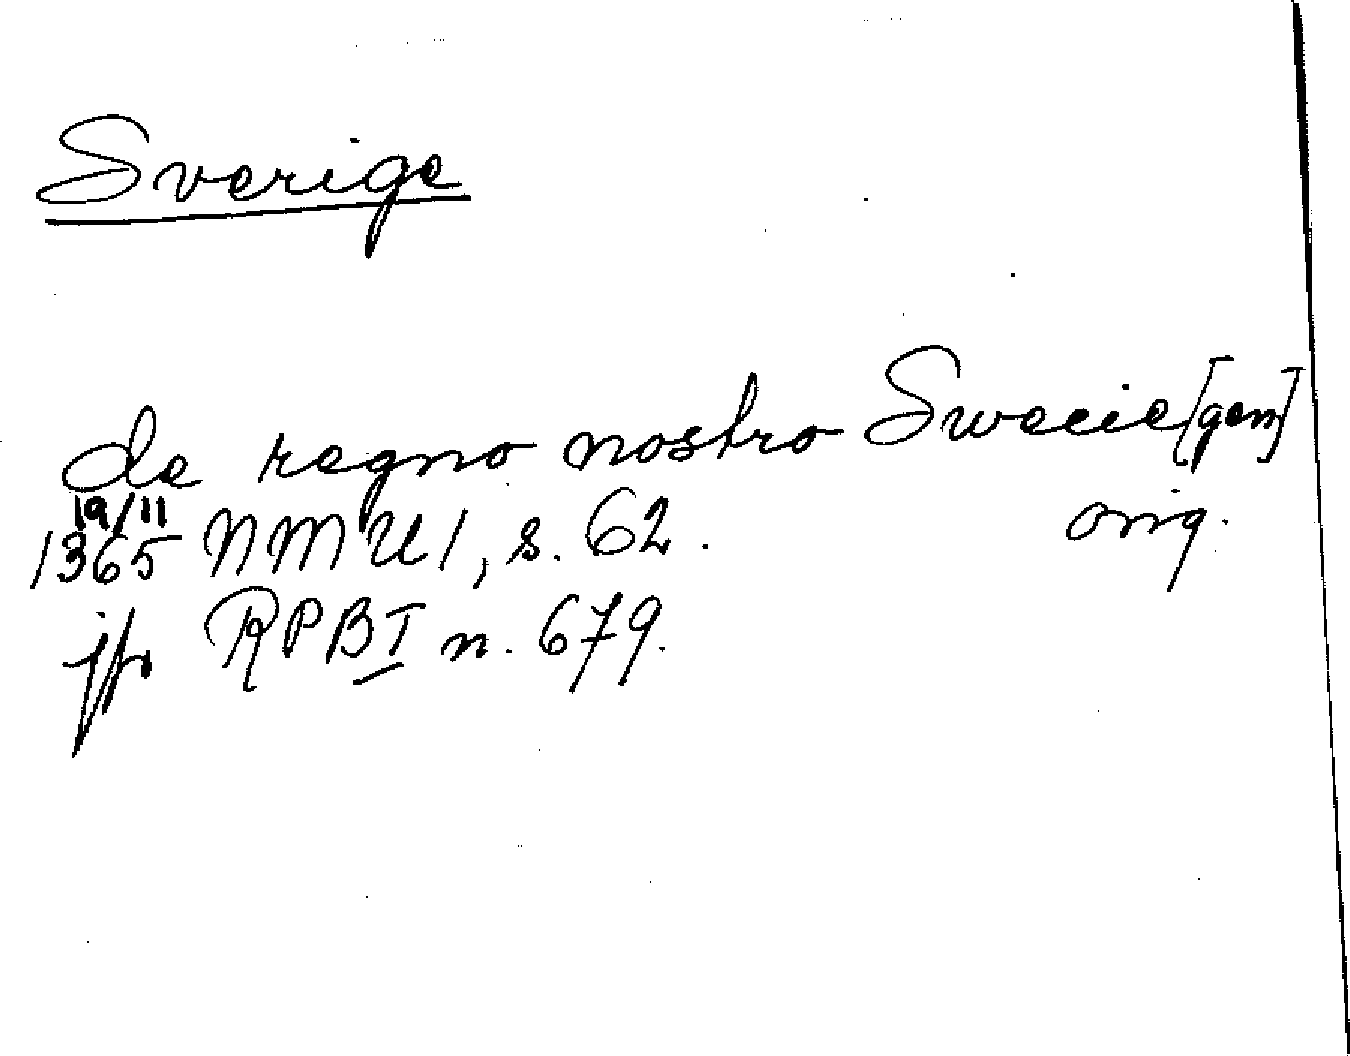 Sverige
de regno nostro Swecie [gem]
19/11
1365 NMU1, s. 62. orig.
jfr RPB I n. 679.